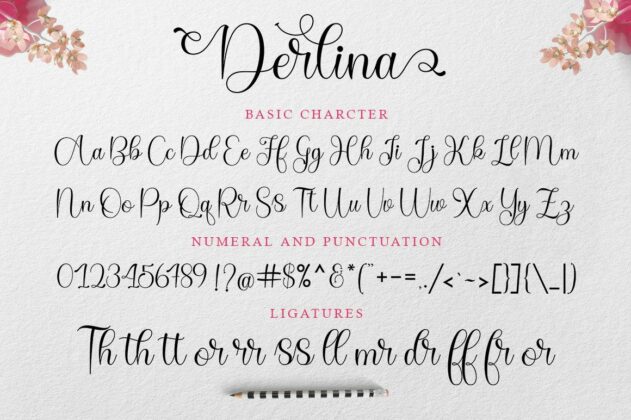 Derlina
BASIC CHARCTER
Aa Bb Cc Dd Ee Ff Gg Hh Ii Jj Kk Ll Mm
Nn Oo Pp Qq Rr Ss Tt Uu Vv Ww Xx Yy Zz
NUMERAL AND PUNCTUATION
0123456789!?@#$%^&*("+-=,./<`~>[}]{\_|)
LIGATURES
Th th tt or rr ss ll mr dr ff fr or